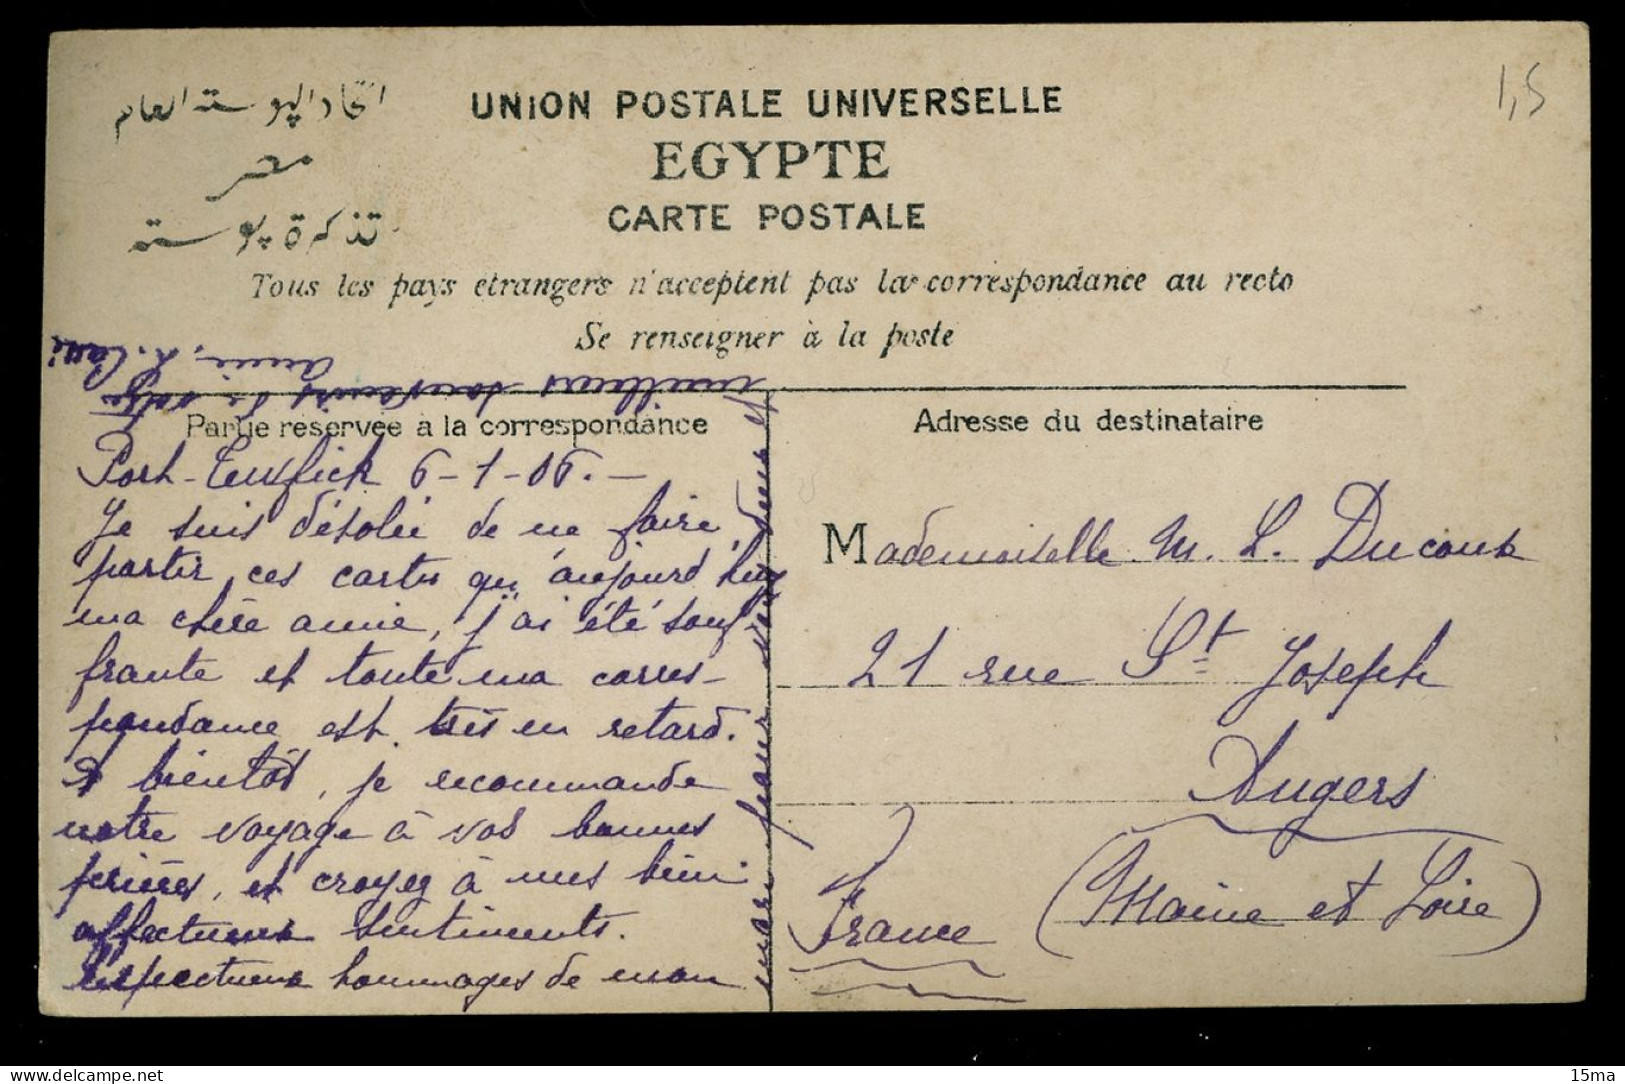 اتحاد البوسته العام
مصر
تذكرة بوسته
UNION POSTALE UNIVERSELLE
EGYPTE
CARTE POSTALE
1,5
Tous les pays etrangers n'acceptent pas la correspondance au recto
Se renseigner à la poste
Partie reservée a la correspondance
Port-Tewfick 6-1-06.-
Je suis désolée de ne faire
partir ces cartes qu'aujourd'hui
ma chère amie, j'ai été souf
frante et toute ma corres-
pondance est très en retard.
A bientôt, je recommande
notre voyage à vos bonnes
prières, et croyez à mes bien
affectueux sentiments.
Respectueux hommages de mon
mari pour vos parents et
meilleurs souvenirs de votre
amie,
Adresse du destinataire
Mademoiselle M. L. Ducout
21 rue St Joseph
Angers
(Maine et Loire)
France
15ma